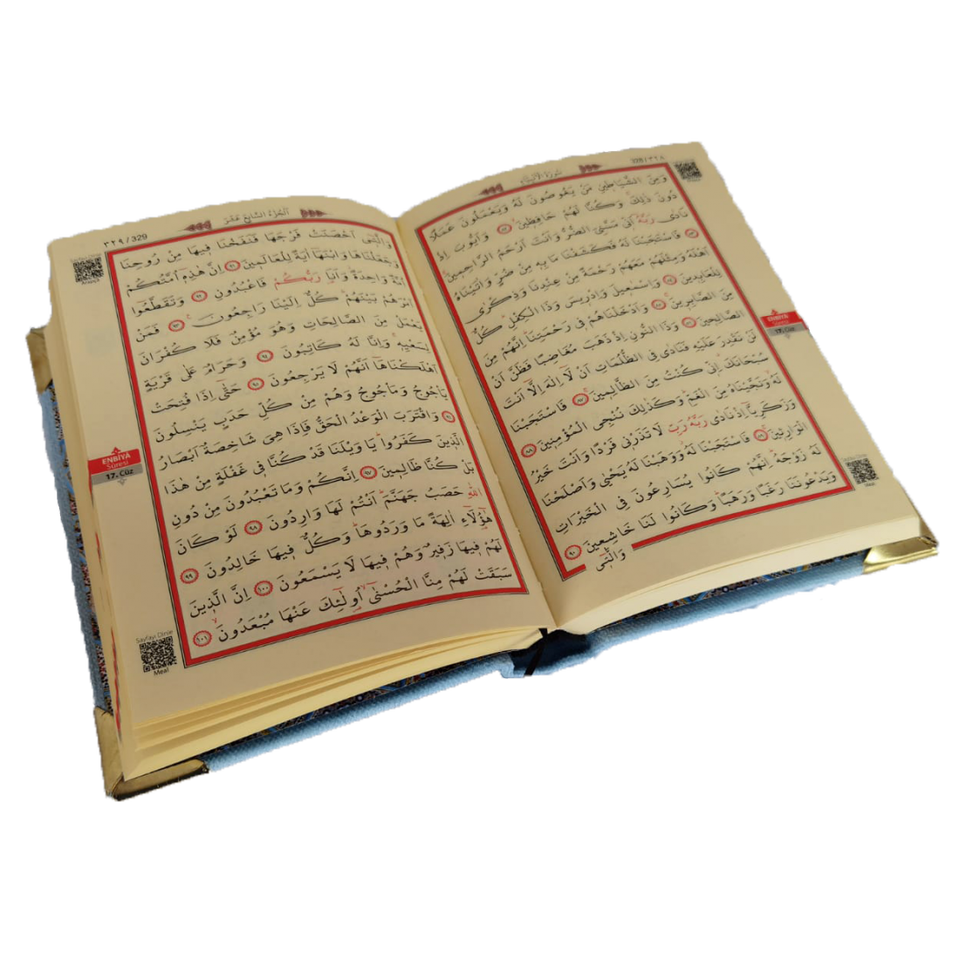 ٣٢٨ / 328
سُورَةُ الْاَنْبِيَاءِ
وَمِنَ الشَّيَاطِينِ مَنْ يَغُوصُونَ لَهُ وَيَعْمَلُونَ عَمَلًا
دُونَ ذٰلِكَ وَكُنَّا لَهُمْ حَافِظِينَ ٨٢ وَاَيُّوبَ اِذْ
نَادٰى رَبَّهُ اَنِّى مَسَّنِىَ الضُّرُّ وَاَنْتَ اَرْحَمُ الرَّاحِمِينَ
٨٣ فَاسْتَجَبْنَا لَهُ فَكَشَفْنَا مَا بِهِ مِنْ ضُرٍّ وَاٰتَيْنَاهُ
اَهْلَهُ وَمِثْلَهُمْ مَعَهُمْ رَحْمَةً مِنْ عِنْدِنَا وَذِكْرٰى
لِلْعَابِدِينَ ٨٤ وَاِسْمٰعِيلَ وَاِدْرِيسَ وَذَا الْكِفْلِ كُلٌّ
مِنَ الصَّابِرِينَ ٨٥ وَاَدْخَلْنَاهُمْ فِى رَحْمَتِنَا اِنَّهُمْ مِنَ
الصَّالِحِينَ ٨٦ وَذَا النُّونِ اِذْ ذَهَبَ مُغَاضِبًا فَظَنَّ اَنْ
لَنْ نَقْدِرَ عَلَيْهِ فَنَادٰى فِى الظُّلُمَاتِ اَنْ لَا اِلٰهَ اِلَّا اَنْتَ
سُبْحَانَكَ اِنِّى كُنْتُ مِنَ الظَّالِمِينَ ٨٧ فَاسْتَجَبْنَا
لَهُ وَنَجَّيْنَاهُ مِنَ الْغَمِّ وَكَذٰلِكَ نُنْجِى الْمُؤْمِنِينَ ٨٨
وَزَكَرِيَّا اِذْ نَادٰى رَبَّهُ رَبِّ لَا تَذَرْنِى فَرْدًا وَاَنْتَ خَيْرُ
الْوَارِثِينَ ٨٩ فَاسْتَجَبْنَا لَهُ وَوَهَبْنَا لَهُ يَحْيٰى وَاَصْلَحْنَا
لَهُ زَوْجَهُ اِنَّهُمْ كَانُوا يُسَارِعُونَ فِى الْخَيْرَاتِ
وَيَدْعُونَنَا رَغَبًا وَرَهَبًا وَكَانُوا لَنَا خَاشِعِينَ ٩٠
وَالَّتٖى
ENBİYÂ
17. Cüz
اَلْجُزْءُ السَّابِعُ عَشَرَ
٣٢٩ / 329
وَالَّتٖى اَحْصَنَتْ فَرْجَهَا فَنَفَخْنَا فِيهَا مِنْ رُوحِنَا
وَجَعَلْنَاهَا وَابْنَهَا اٰيَةً لِلْعَالَمِينَ ٩١ اِنَّ هٰذِهِ اُمَّتُكُمْ
اُمَّةً وَاحِدَةً وَاَنَا رَبُّكُمْ فَاعْبُدُونِ ٩٢ وَتَقَطَّعُوا
اَمْرَهُمْ بَيْنَهُمْ كُلٌّ اِلَيْنَا رَاجِعُونَ ٩٣ فَمَنْ
يَعْمَلْ مِنَ الصَّالِحَاتِ وَهُوَ مُؤْمِنٌ فَلَا كُفْرَانَ
لِسَعْيِهِ وَاِنَّا لَهُ كَاتِبُونَ ٩٤ وَحَرَامٌ عَلٰى قَرْيَةٍ
اَهْلَكْنَاهَا اَنَّهُمْ لَا يَرْجِعُونَ ٩٥ حَتّٰى اِذَا فُتِحَتْ
يَاْجُوجُ وَمَاْجُوجُ وَهُمْ مِنْ كُلِّ حَدَبٍ يَنْسِلُونَ
٩٦ وَاقْتَرَبَ الْوَعْدُ الْحَقُّ فَاِذَا هِىَ شَاخِصَةٌ اَبْصَارُ
الَّذِينَ كَفَرُوا يَا وَيْلَنَا قَدْ كُنَّا فِى غَفْلَةٍ مِنْ هٰذَا
بَلْ كُنَّا ظَالِمِينَ ٩٧ اِنَّكُمْ وَمَا تَعْبُدُونَ مِنْ دُونِ
اللّٰهِ حَصَبُ جَهَنَّمَ اَنْتُمْ لَهَا وَارِدُونَ ٩٨ لَوْ كَانَ
هٰؤُلَاءِ اٰلِهَةً مَا وَرَدُوهَا وَكُلٌّ فِيهَا خَالِدُونَ ٩٩
لَهُمْ فِيهَا زَفِيرٌ وَهُمْ فِيهَا لَا يَسْمَعُونَ ١٠٠ اِنَّ الَّذِينَ
سَبَقَتْ لَهُمْ مِنَّا الْحُسْنٰى اُولٰئِكَ عَنْهَا مُبْعَدُونَ ١٠١
ENBİYÂ
Suresi
17. Cüz
Sayfayı Dinle
Meal